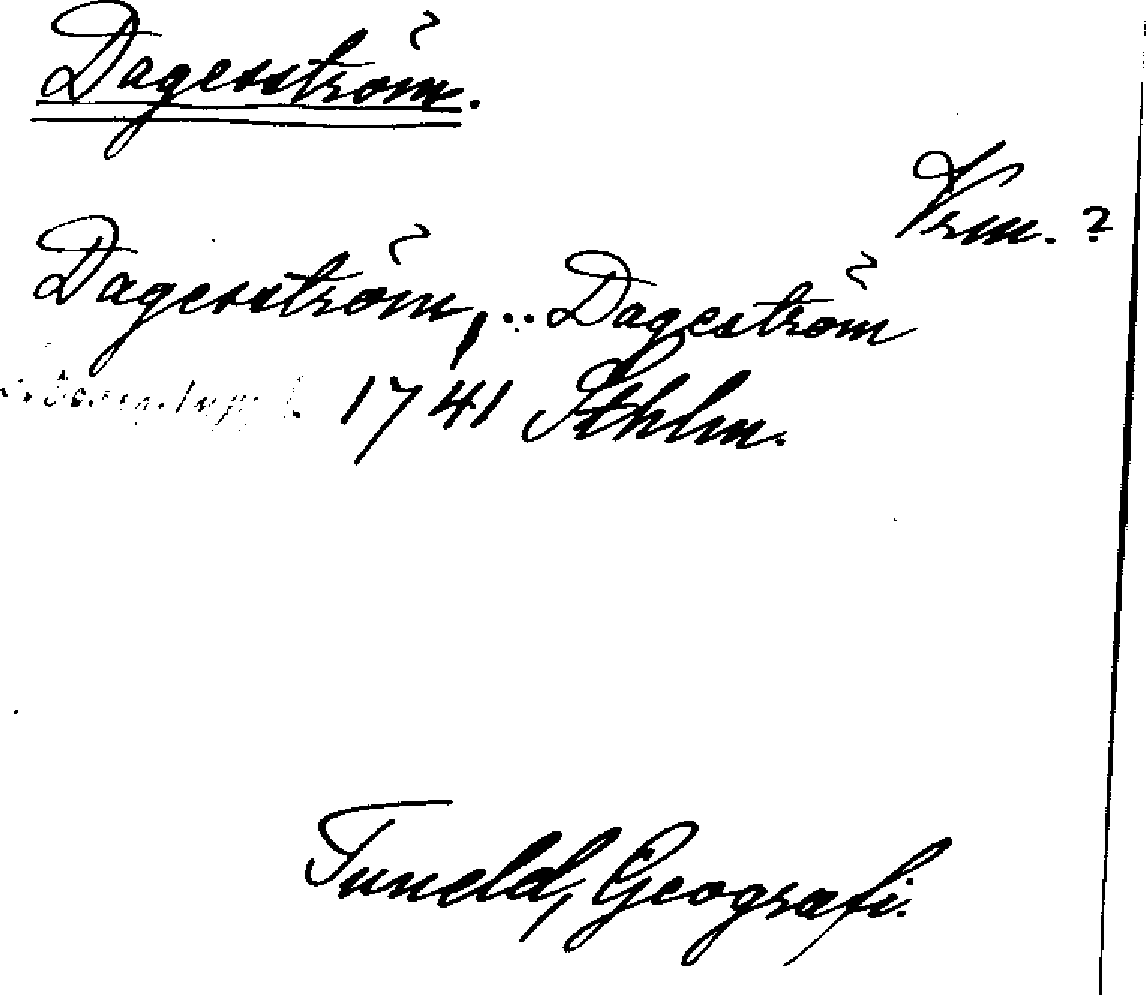 Dagersström.
Vrm. ?
Dagersström, .. Dageström
1741 Sthlm.
Tuneld, Geografi.